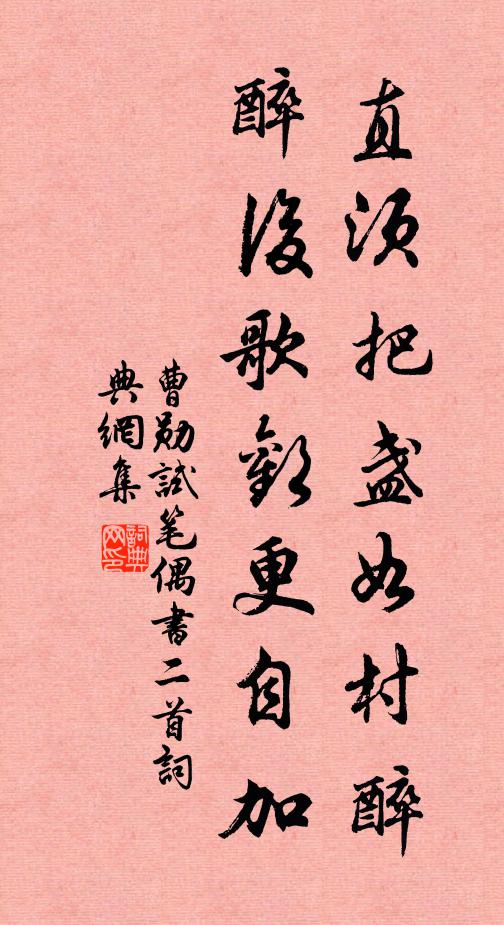 直須把盞如村醉
醉後歌歡更自加
曹勛試笔偶書二首詞
典網集
詞典網印